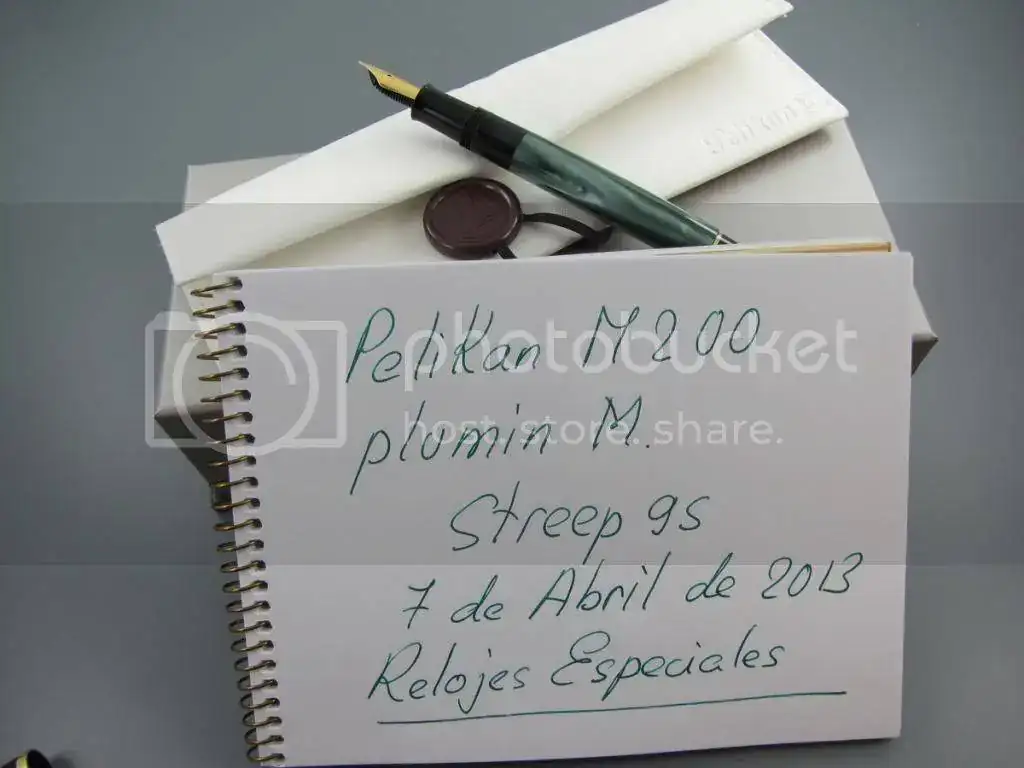 Pelikan
Pelikan M200
photobucket
plomin M.
host. store. share.
Streep 9s
7 de Abril de 2013
Relojes Especiales